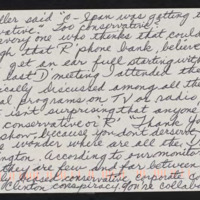 ller said "C-Span was getting
vative." Too conservative?
wrong one who thinks that coul
gh that R' phone bank, believe
get an ear full starting with
last D meeting I attended the
ically discussed among all the
al programs on TV or radio
isn't surprising that anyone
conservative or R' "Thank you
show, because you don't deserv
wonder where are all the, D
ngton. According to our monitor
they are few and far between
ly biased conservative corporate c
Clinton conspiracy, you're collab